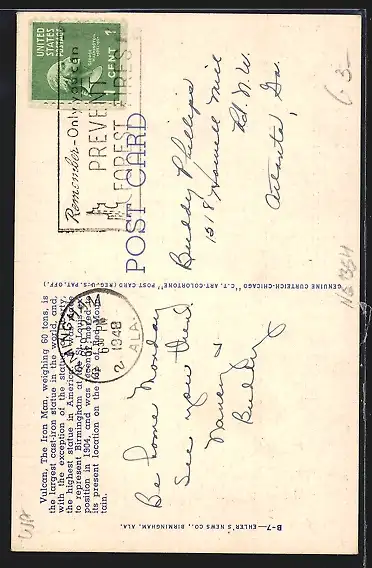 Vulcan, The Iron Man, weighing 60 tons, is
the largest cast-iron statue in the world, and,
with the exception of the statue of Liberty,
the highest statue in America. It was cast
to represent Birmingham at the St. Louis Ex-
position in 1904, and was recently moved to
its present location on the top of Red Moun-
tain.
Be home Monday
See you then.
Nancy &
Buddy
B-7—EHLER'S NEWS CO., BIRMINGHAM, ALA.
GENUINE CURTEICH-CHICAGO "C.T. ART-COLORTONE" POST CARD (REG. U.S. PAT. OFF.)
6 30 PM
1948
ALA.
2
Remember-Only you can
PREVENT
FOREST FIRES!
UNITED
STATES
POSTAGE
1 CENT 1
POST CARD
Buddy Phillips
1318 Howell Mill
Rd. N.W.
Atlanta, Ga.
63-